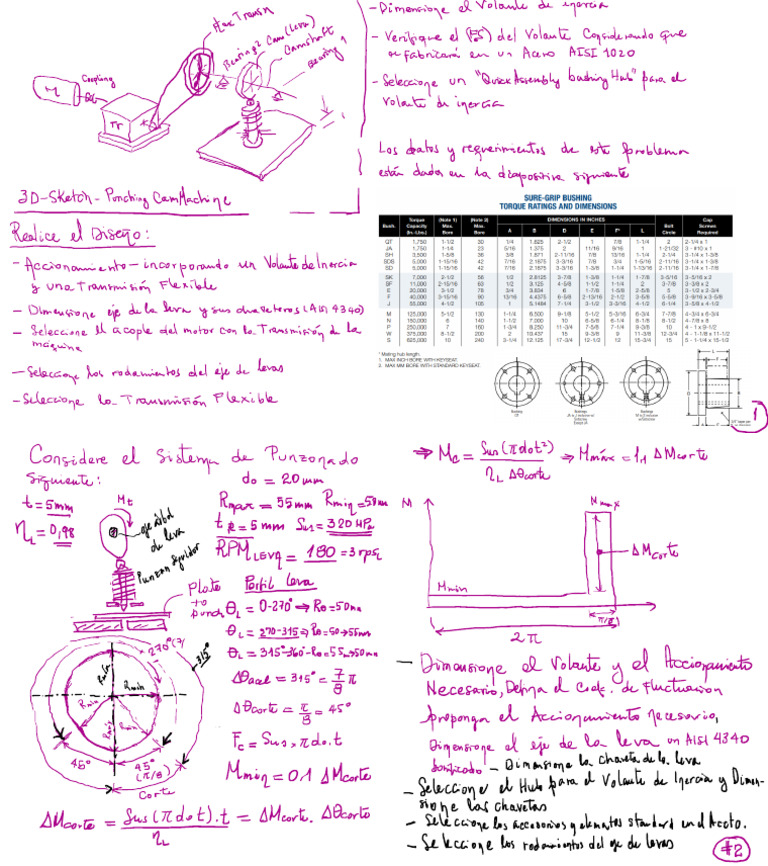 - Dimensione el Volante de inercia
- Verifique el (FS) del Volante Considerando que
se fabricará en un Acero AISI 1020
- Seleccione un "Quick Assembly bushing Hub" para el
volante de inercia
Flex Transm
Bearing 2
Cam (Leva)
Camshaft
Bearing 1
Coupling
M
Tr
Los datos y requerimientos de este problema
están dados en la diapositiva siguiente
3D-Sketch - Punching Cam Machine
Realice el Diseño:
- Accionamiento - incorporando un Volante de Inercia
y una Transmisión Flexible
- Dimensione eje de la leva y sus chaveteros (AISI 4340)
- Seleccione el acople del motor con la Transmisión de la
máquina
- Seleccione los rodamientos del eje de levas
- Seleccione la Transmisión Flexible
SURE-GRIP BUSHING
TORQUE RATINGS AND DIMENSIONS
Bush. Torque Capacity (In.-Lbs.) (Note 1) Max. Bore (Note 2) Max. Bore DIMENSIONS IN INCHES A B D E F* L Bolt Circle Cap Screws Required
QT 1,750 1-1/2 30 1/4 1.625 2-1/2 1 7/8 1-1/4 2 2-1/4 x 1
JA 1,750 1-1/4 23 5/16 1.375 2 11/16 9/16 1 1-21/32 3 - #10 x 1
SH 3,500 1-5/8 36 3/8 1.871 2-11/16 7/8 13/16 1-1/4 2-1/4 3-1/4 x 1-3/8
SDS 5,000 1-15/16 42 7/16 2.1875 3-3/16 7/8 3/4 1-5/16 2-11/16 3-1/4 x 1-3/8
SD 5,000 1-15/16 42 7/16 2.1875 3-3/16 1-3/8 1-1/4 1-13/16 2-11/16 3-1/4 x 1-7/8
SK 7,000 2-1/2 56 1/2 2.8125 3-7/8 1-3/8 1-1/4 1-7/8 3-5/16 3-5/16 x 2
SF 11,000 2-15/16 60 1/2 3.125 4-5/8 1-1/2 1-1/4 2 3-7/8 3-3/8 x 2
E 20,000 3-1/2 78 3/4 3.834 6 1-7/8 1-5/8 2-5/8 5 3-1/2 x 2-3/4
F 40,000 3-15/16 90 13/16 4.4375 6-5/8 2-13/16 2-1/2 3-5/8 5-5/8 3-9/16 x 3-5/8
J 55,000 4-1/2 105 1 5.1484 7-1/4 3-1/2 3-3/16 4-1/2 6-1/4 3-5/8 x 4-1/2
M 125,000 5-1/2 130 1-1/4 6.500 9-1/8 5-1/2 5-3/16 6-3/4 7-7/8 4-3/4 x 6-3/4
N 150,000 6 140 1-1/2 7.000 10 6-5/8 6-1/4 8-1/8 8-1/2 4-7/8 x 8
P 250,000 7 160 1-3/4 8.250 11-3/4 7-5/8 7-1/4 9-3/8 10 4 - 1 x 9-1/2
W 375,000 8-1/2 200 2 10.437 15 9-3/8 9 11-3/8 12-3/4 4 - 1-1/8 x 11-1/2
S 625,000 10 240 3-1/4 12.125 17-3/4 12-1/2 12 15-3/4 15 5 - 1-1/4 x 15-1/2
* Mating hub length.
1. MAX INCH BORE WITH KEYSEAT.
2. MAX MM BORE WITH STANDARD KEYSEAT.
1
Considere el Sistema de Punzonado
Siguiente:
do = 20 mm
t = 5mm
ηL = 0,98
Mt
eje árbol
de leva
Punzon Seguidor
Rmax = 55mm Rmin = 50mm
t = 5 mm Sus = 320 MPa
RPM LEVA = 180 = 3 rps
Plate
to
punch
Perfil Leva
θL = 0-270° ⇒ Rθ = 50mm
θL = 270-315 ⇒ Rθ = 50→55mm
θL = 315°-360 - Rθ = 55→50mm
Δθacel = 315° = 7/8 π
Δθcorte = π/8 = 45°
Fc = Sus × π do . t
Mmin = 0.1 ΔMcorte
270°
315°
Rmin
Rmin
Rmin
Rmin
45°
45°
(π/8)
Corte
ΔMcorte = Sus (π do t) . t / ηL = ΔMcorte . Δθcorte
⇒ Mc = Sus (π do t²) / ηL Δθcorte ⇒ Mmáx = 1,1 ΔMcorte
M
Mmax
ΔMcorte
Mmin
π/8
2π
- Dimensione el Volante y el Accionamiento
Necesario, Defina el Coef. de Fluctuacion
proponga el Accionamiento necesario,
Dimensione el eje de la leva en AISI 4340
bonificado - Dimensione la chaveta de la leva
- Seleccione el Hub para el Volante de Inercia y Dimen-
sione las chavetas
- Seleccione los accesorios y elementos standard en el Accto.
- Seleccione los rodamientos del eje de levas
#2